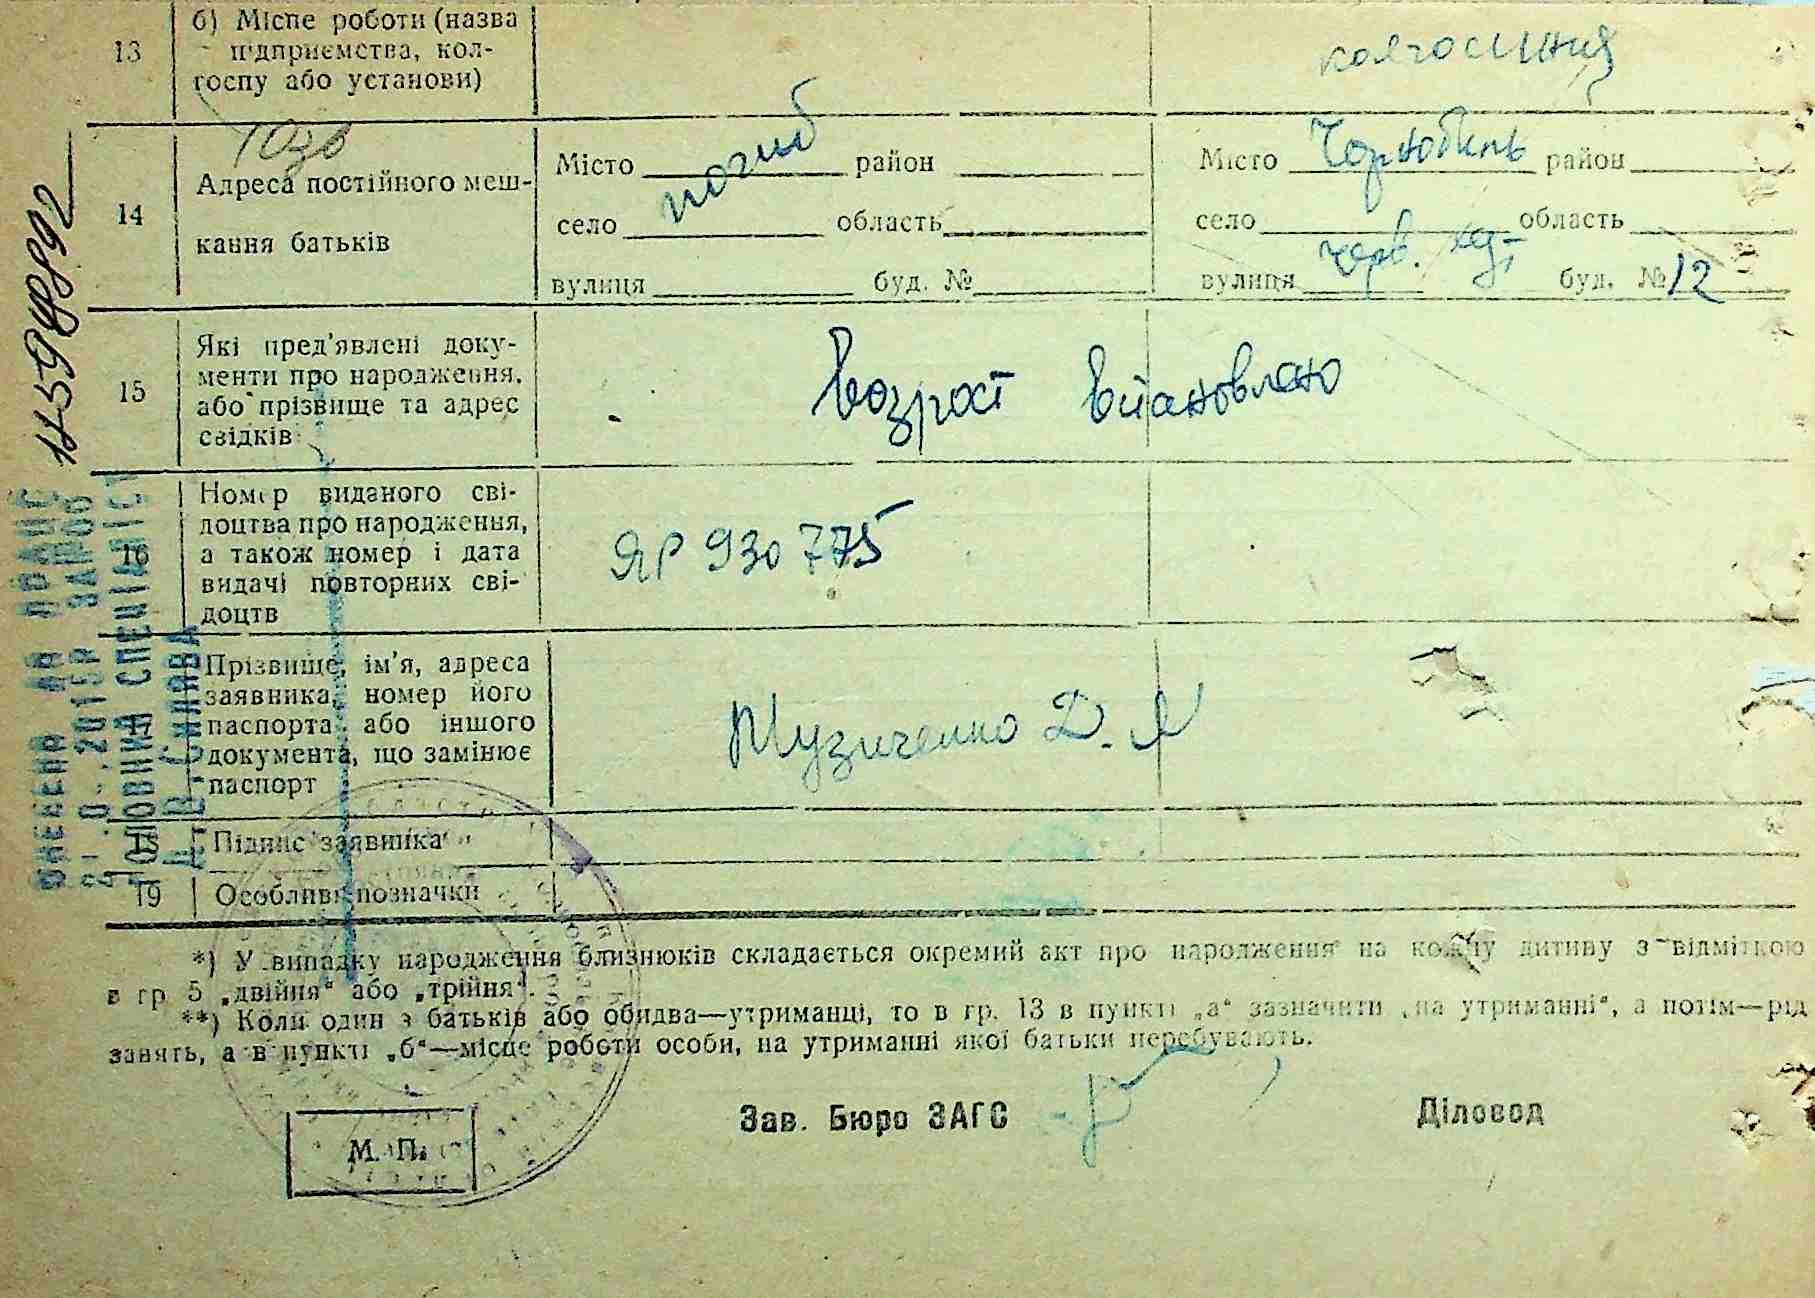 13
б) Місце роботи (назва
підприємства, кол-
госпу або установи)
14
Адреса постійного меш-
кання батьків
Місто погиб район
село область
вулиця буд. №
Місто район
село область
вулиця Черв. буд. № 12
15
Які пред'явлені доку-
менти про народження,
або прізвище та адрес
свідків
Возрост встановлено
16
Номер виданого сві-
доцтва про народження,
а також номер і дата
видачі повторних сві-
доцтв
ЯР 930775
17
Прізвище, ім'я, адреса
заявника, номер його
паспорта або іншого
документа, що замінює
паспорт
Музиченко Д. Я
18
Підпис заявника
19
Особливі позначки
*) У випадку народження близнюків складається окремий акт про народження на кожну дитину з відміткою
в гр 5 „двійня“ або „трійня“.
**) Коли один з батьків або обидва—утриманці, то в гр. 13 в пункті „а“ зазначити „на утриманні“, а потім—рід
занять, а в пункті „б“—місце роботи особи, на утриманні якої батьки перебувають.
Зав. Бюро ЗАГС
Діловод
М. П.